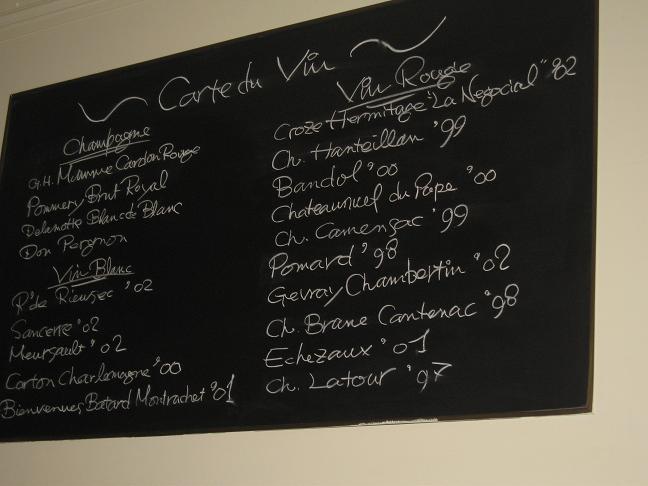 Carte du Vin
Champagne
G.H. Mumme Cardon Rouge
Pommery Brut Royal
Delamotte Blanc de Blanc
Don Perignon
Vin Blanc
R' de Rieusec '02
Sancerre '02
Meursault '02
Corton Charlemagne '00
Bienvenues Batard Montrachet '01
Vin Rouge
Croze Hermitage "La Negocial" '02
Ch. Hanteillan '99
Bandol '00
Chateauneuf du Pape '00
Ch. Camensac '99
Pomard '98
Gevray Chambertin '02
Ch. Brane Cantenac '98
Echezaux '01
Ch. Latour '97